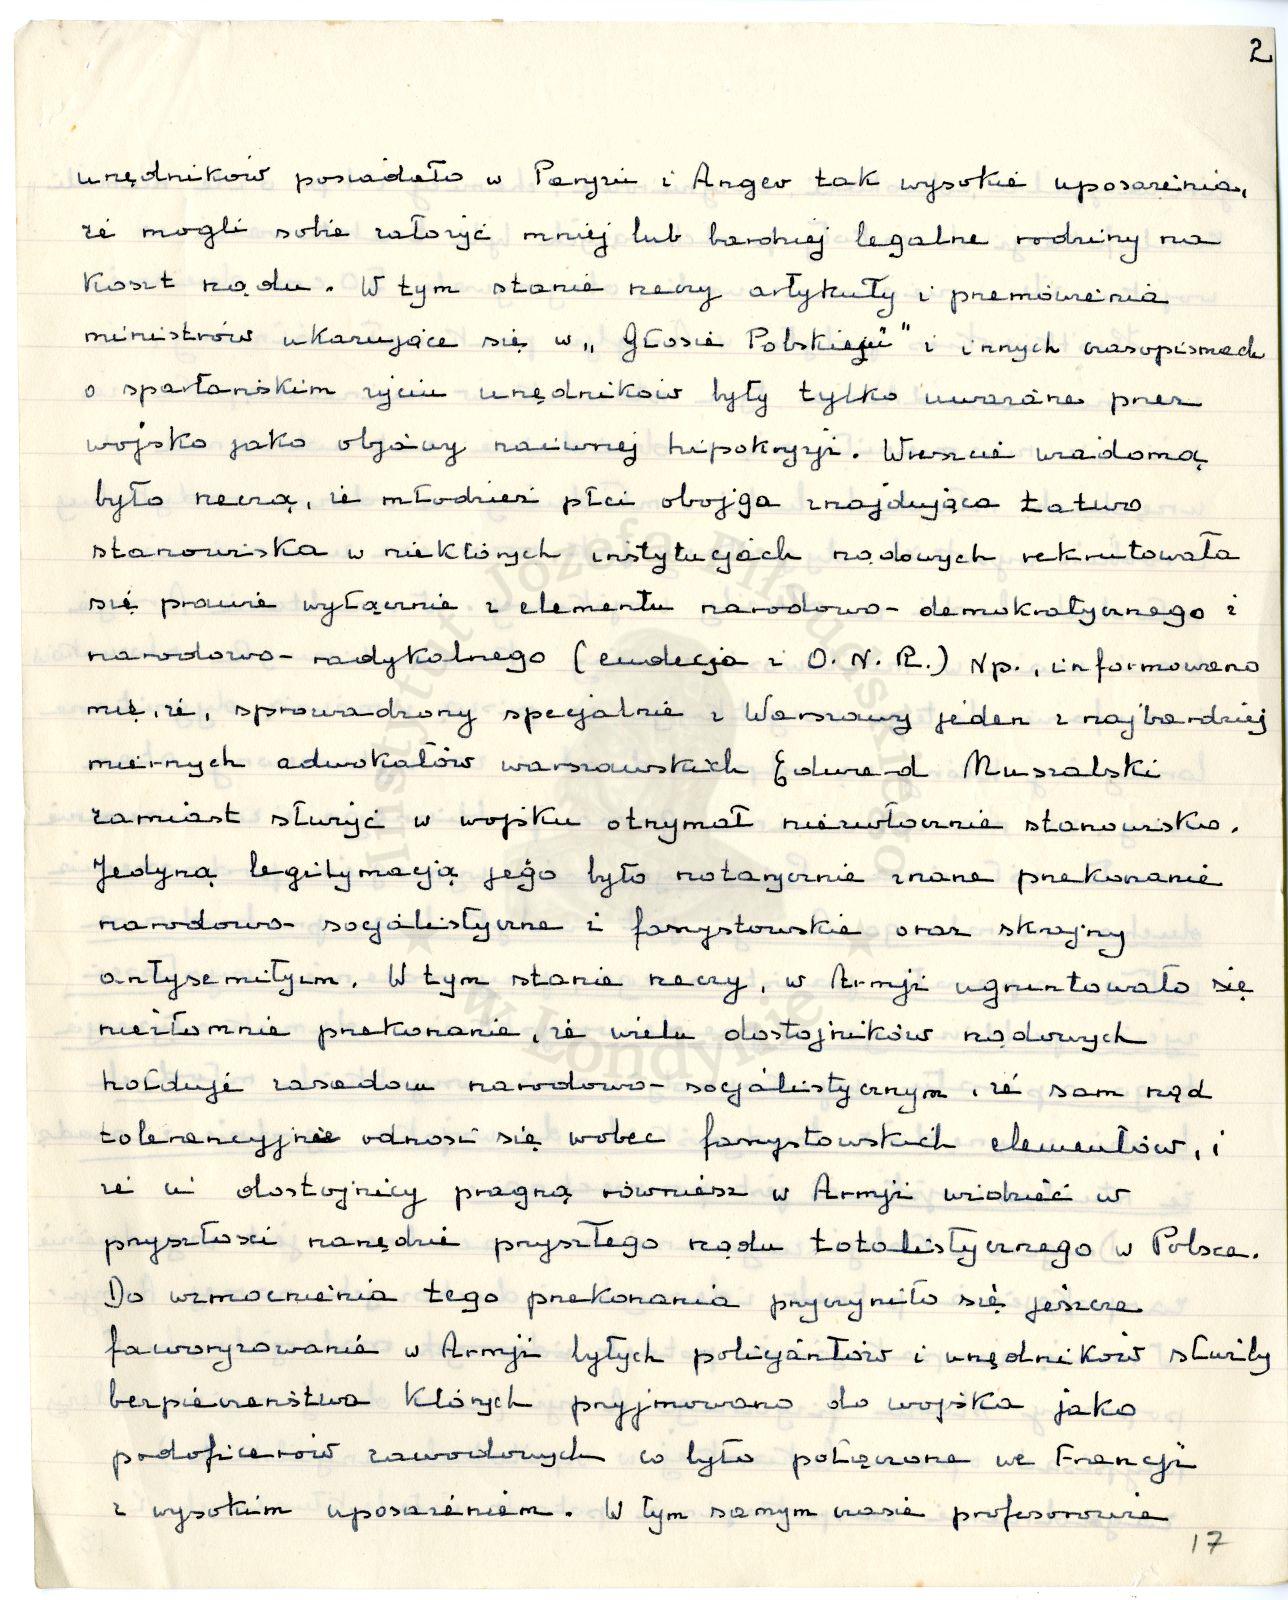 2
urzędników posiadało w Paryżu i Angev tak wysokie uposażenia,
że mogli sobie założyć mniej lub bardziej legalne rodziny na
koszt rządu. W tym stanie rzeczy artykuły i przemówienia
ministrów ukazujące się w „Głosie Polskiem" i innych czasopismach
o spartańskim życiu urzędników były tylko uważane przez
wojsko jako objawy naiwnej hipokryzji. Wreszcie wiadomą
było rzeczą, że młodzież płci obojga znajdująca łatwo
stanowiska w niektórych instytucjach rządowych rekrutowała
się prawie wyłącznie z elementu narodowo-demokratycznego i
narodowo-radykalnego (endecja i O.N.R.) Np., informowano
mię, że, sprowadzony specjalnie z Warszawy jeden z najbardziej
miernych adwokatów warszawskich Edward Muszalski
zamiast służyć w wojsku otrzymał niezwłocznie stanowisko.
Jedyną legitymacją jego było notorycznie znane przekonanie
narodowo-socjalistyczne i faszystowskie oraz skrajny
antysemityzm. W tym stanie rzeczy, w Armji ugruntowało się
niezłomnie przekonanie, że wielu dostojników rządowych
hołduje zasadom narodowo-socjalistycznym, że sam rząd
tolerancyjnie odnosi się wobec faszystowskich elementów, i
że ci dostojnicy pragną również w Armji widzieć w
przyszłości narzędzie przyszłego rządu totalistycznego w Polsce.
Do wzmocnienia tego przekonania przyczyniło się jeszcze
faworyzowanie w Armji byłych policjantów i urzędników służby
bezpieczeństwa których przyjmowano do wojska jako
podoficerów zawodowych co było połączone we Francji
z wysokim uposażeniem. W tym samym czasie profesorowie
17
Instytut Józefa Piłsudskiego
w Londynie